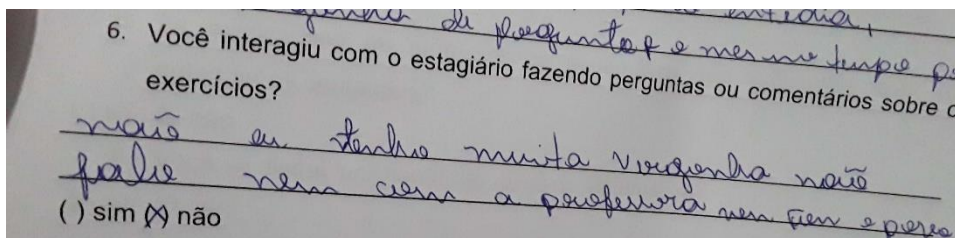 de perguntas e mesmo tempo
6. Você interagiu com o estagiário fazendo perguntas ou comentários sobre
exercícios?
não eu tenho muita virgonha não
falo nem com a professora nem
( ) sim (X) não